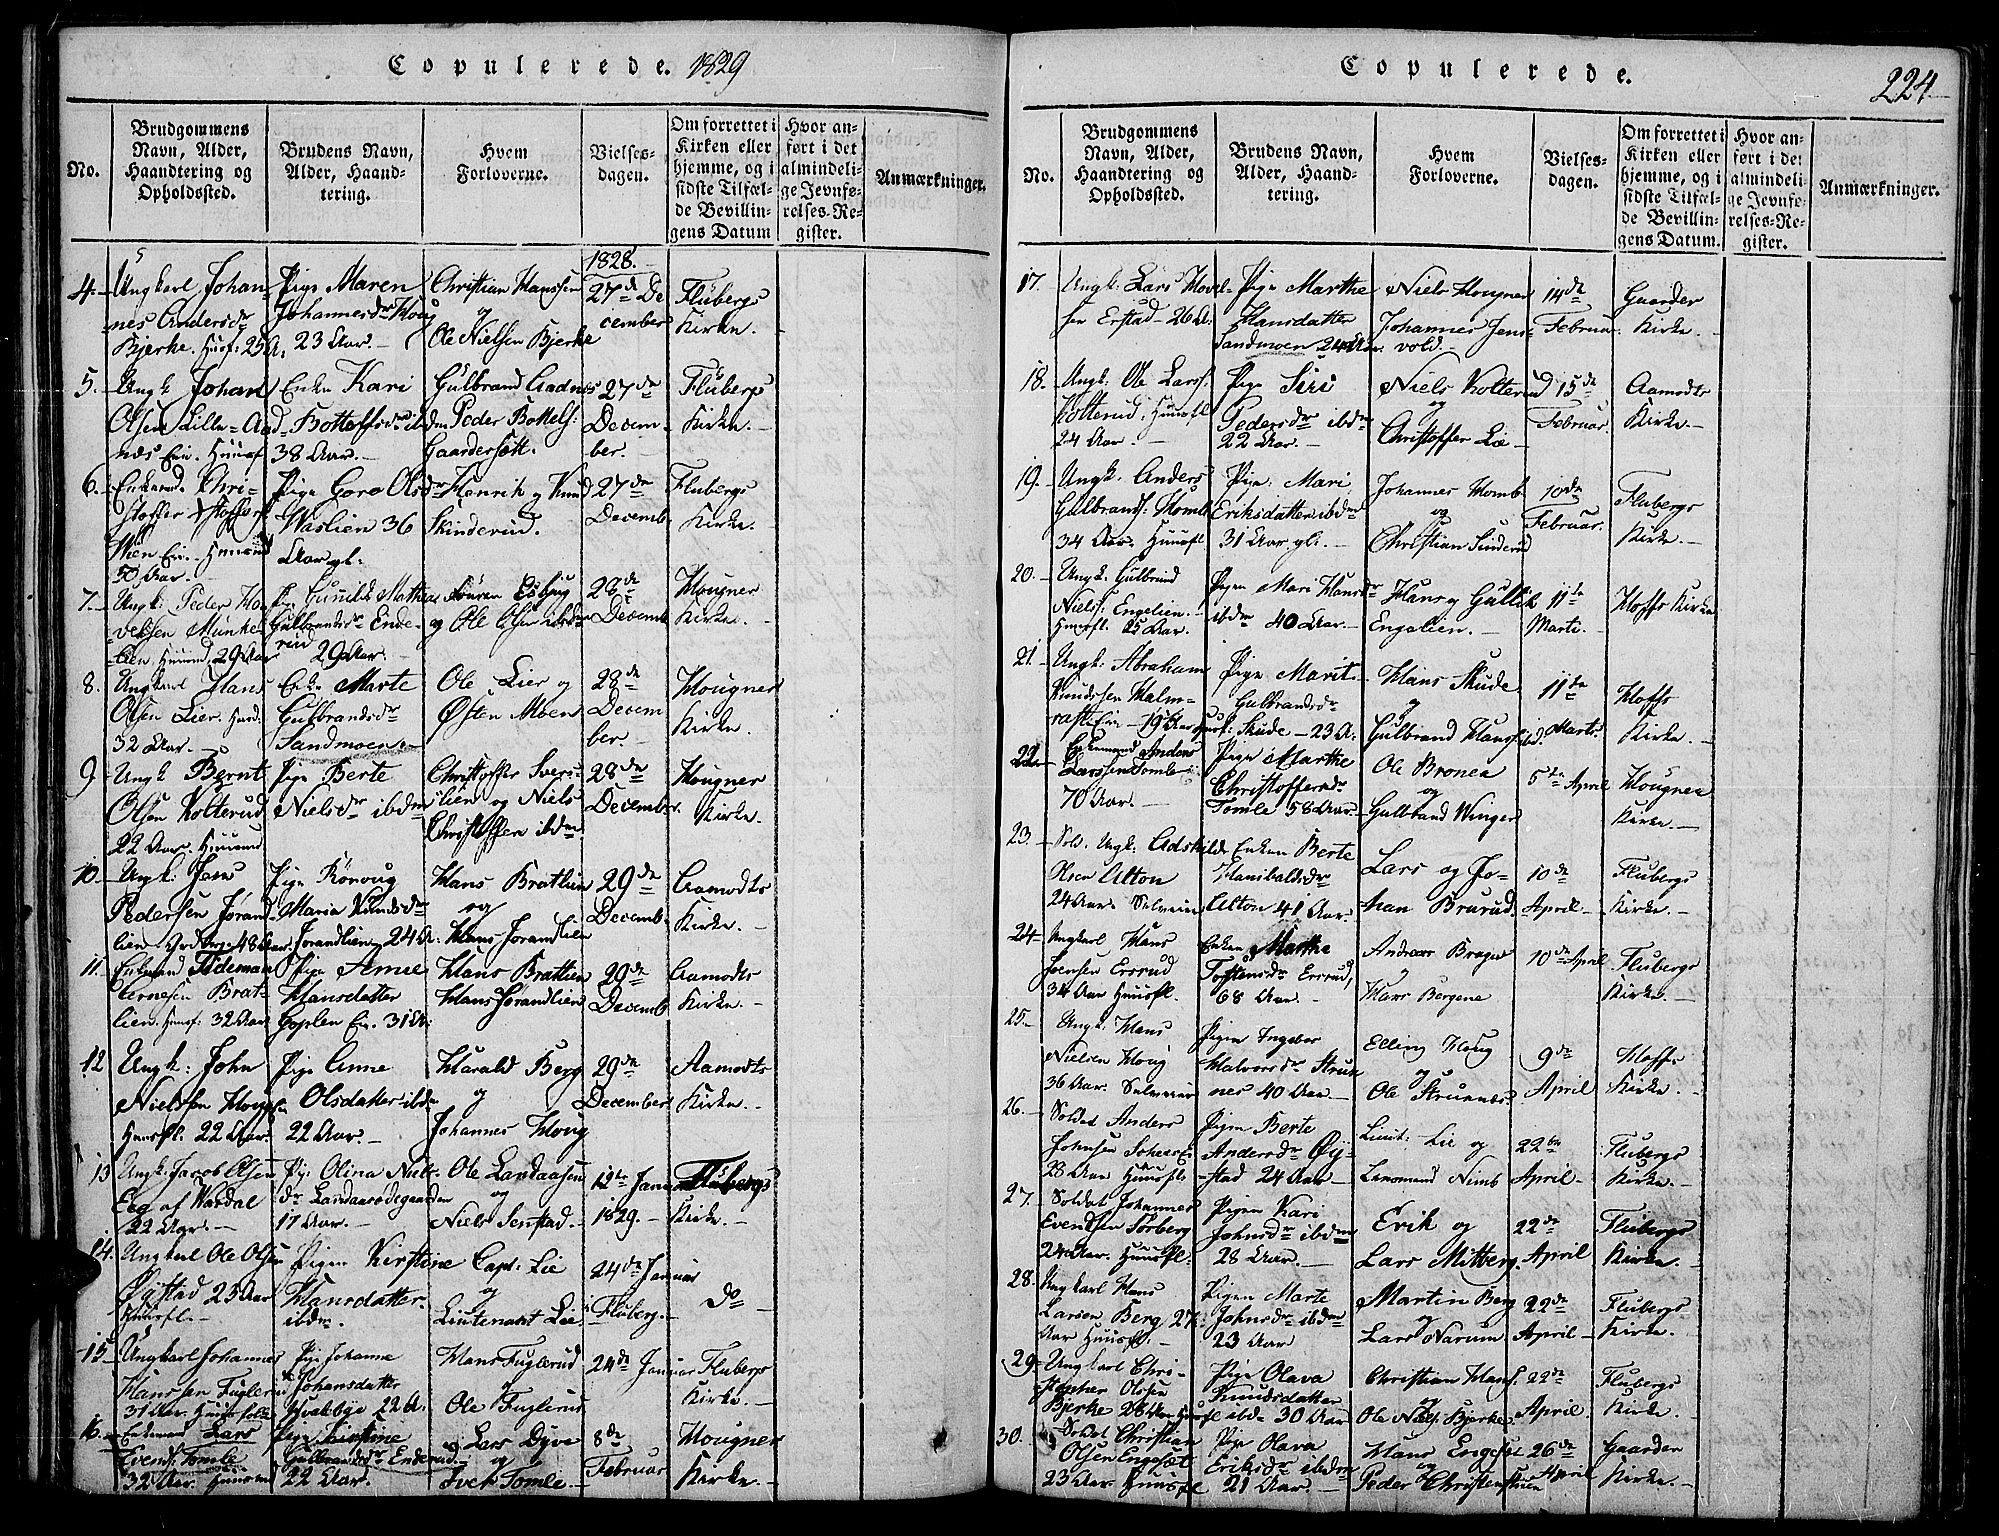 Copulerede. 1829
No.
Brudgommens Navn, Alder, Haandtering og Opholdssted.
Brudens Navn, Alder, Haandtering.
Hvem Forloverne.
Vielsesdagen.
Om forrettet i Kirken eller hjemme, og i sidste Tilfælde Bevillingens Datum
Hvor anført i det almindelige Jevnførelses-Register.
Anmærkninger.
1828.
4. Ungkarl Johannes Andersdr Bjerke. Huusf: 25 A.
Pige Maren Johannesdr Houg 23 Aar.
Christian Hanssen og Ole Nielsen Bjerke
27de December
Flubergs Kirke.
5. Ungk Johan Olsen Lille-Aadnæs Ei. Huusf
Enke Kari Bottelfsdr ibdm 38 Aar.
Gulbrand Aadnes Peder Bottels: Gaardersætt.
27de December.
Flubergs Kirke.
6. Enkemd. Christoffer
50 Aar.
Pige Goro Olsdr Waslien 36 Aar gl.
Henrik og Knud Skinderud.
27de Decemb.
Flubergs Kirke.
7. Ungk: Peder Hovelsen Munkelien. Huusmd 29 Aar
Pige Gunild Mathea Gulbrandsdr Enderud 29 Aar.
og Ole Olsen
28de Decemb
Hougner Kirke.
8. Ungkarl Hans Olsen Lier. 32 Aar.
Enke Marte Gulbrandsdr Sandmoen.
Ole Lier og Østen Moen
28de December.
Hougner Kirke.
9 Ungk Bernt Olsen Kolterud 22 Aar. Huusmd
Pige Berte Nielsdr ibdm
Christoffer Sverslien og Niels Christoffers ibdm
28de December.
Hougner Kirke.
10. Ungk: Jens Pedersen Jørandlien 48 Aar.
Pige Rønnug Maria Knudsdr Jorandlien 24 A.
Hans Bratlien og Hans Jorandlien
29de Decemb
Aamodts Kirke.
11. Enkemand Tideman Arnesen Bratlien. Huusf: 32 Aar
Pige Anne Hansdatter Goplen Ei. 31 A:
Hans Bratlien Hans Jørandlien
29de Decemb
Aamodts Kirke.
12 Ungk: John Nielssen Houg Huusfl. 22 Aar.
Pige Anne Olsdatter ibdm 22 Aar.
Harald Berg og Johannes Houg
29de December
Aamodts Kirke.
13 Ungk: Jacob Olsen Eeg af Wardal 22 Aar.
Pige Olina Niels dr Landaasødegaarden 17 Aar.
Ole Landaasen og Niels Senstad.
12te Januar 1829.
Flubergs Kirke.
14. Ungkarl Ole Olsen Øystad 23 Aar Huusfl.
Pigen Kirstine Hansdatter ibdm.
Capt: Lie og Lieutenant Lie
24de Januar Fluberg.
Do
15 Ungkarl Johannes Hanssen Fuglerud 31 Aar. Huusfolk
Pige Johanne Johansdatter Hvalebye 22 A.
Hans Fuglerud Ole Fuglerus
24de Januar
Flubergs Kirke.
16. Enkemand Lars Evends: Tomle 32 Aar. Huusmd
Pige Kirstine Gulbrandsdr Enderud 22 Aar.
Lars Dyve og Iver Tomle.
8de Februar
Hougner Kirke.
Copulerede.
224
No.
Brudgommens Navn, Alder, Haandtering og Opholdssted.
Brudens Navn, Alder, Haandtering.
Hvem Forloverne.
Vielsesdagen.
Om forrettet i Kirken eller hjemme, og i sidste Tilfælde Bevillingens Datum.
Hvor anført i det almindelige Jevnførelses-Register.
Anmærkninger.
17. Ungk: Lars Hovelsen Erstad 26 A.
Pige Marthe Hansdatter Sandmoen 24 Aar.
Niels Hougner Johannes Jensvold.
14de Februar
Gaarder Kirke.
18. Ungk: Ole Larss: Kolterud. Huusfl 24 Aar.
Pige Siri Pedersdr ibdm 22 Aar.
Niels Kolterud og Christoffer Lie
15de Februar.
Aamodts Kirke.
19. Ungk. Anders Gulbrands: Homb 34 Aar. Huusfl
Pige: Mari Eriksdatter ibdm 31 Aar gl.
Johannes Homb og Christian Sinderud
10de Februar.
Flubergs Kirke.
20. Ungk: Gulbrand Niels: Engelien. Huusfl. 25 Aar.
Pigen Mari Hansdr ibdm 40 Aar.
Hans og Gullik Engelien.
11te Marti.
Hoffs Kirke
21. Ungk: Abraham Knudssen Halmrast Ei 19 Aar Huusf:
Pige Marit Gulbrandsdr Skude 23 A:
Hans Skude og Gulbrand Hanss ibd.
11te Marts
Hoffs Kirke.
22. Enkemand Anders Larssen Tomle 70 Aar.
Pige Marthe Christoffersdr Tomle 58 Aar.
Ole Bronea og Gulbrand Winger
5te April
Hougner Kirke.
23. Sold. Ungk: Adskild Olsen Alton 24 Aar. Selveier
Enken Berte Hanibalsdr Alton 41 Aar.
Lars og Johan Brurud
10de April
Flubergs Kirke.
24. Ungkarl Hans Jensen Ersrud 34 Aar Huusfl.
Enken Marthe Torstensdr Ersrud, 68 Aar.
Andreas Brager og Hans Bergene
10de April
Flubergs Kirke.
25. Ungk. Hans Nielsen Houg 36 Aar. Selveier
Pigen Ingebor Halvorsdr Strunnes 40 Aar.
Elling Houg og Ole Strunnes.
9de April
Hoffs Kirke.
26. Soldat Anders Johnsen 28 Aar Huusfl.
Pigen Berte Andersdr Øystad 24 Aar
Lieut: Lie og Lensmand Nims
22de April
Flubergs Kirke.
27. Soldat Johannes Evendsen Torberg 24 Aar. Huusfl.
Pigen Kari Johnsdr ibdm 28 Aar.
Erik og Lars Mitberg.
22de April
Flubergs Kirke.
28. Ungkarl Hans Larsen Berg 27 Aar Huusfl.
Pigen Marte Johnsdr ibdm 23 Aar
Martin Berg og Lars Narum
22de April
Flubergs Kirke.
29. Ungkarl Christopher Olssen Bjerke 28 Aar Huusfl
Pige Olava Knudsdatter ibdm 30 Aar
Christian Hans. og Ole Niels: Bjerke.
22de April.
Flubergs Kirke.
30. Soldat Christian Olsen Engesæt 23 Aar. Huusfl
Pige Olava Eriksdr ibdm 21 Aar.
Hans Engeset og Peder Christenstuen
26de April
Gaarder Kirke.